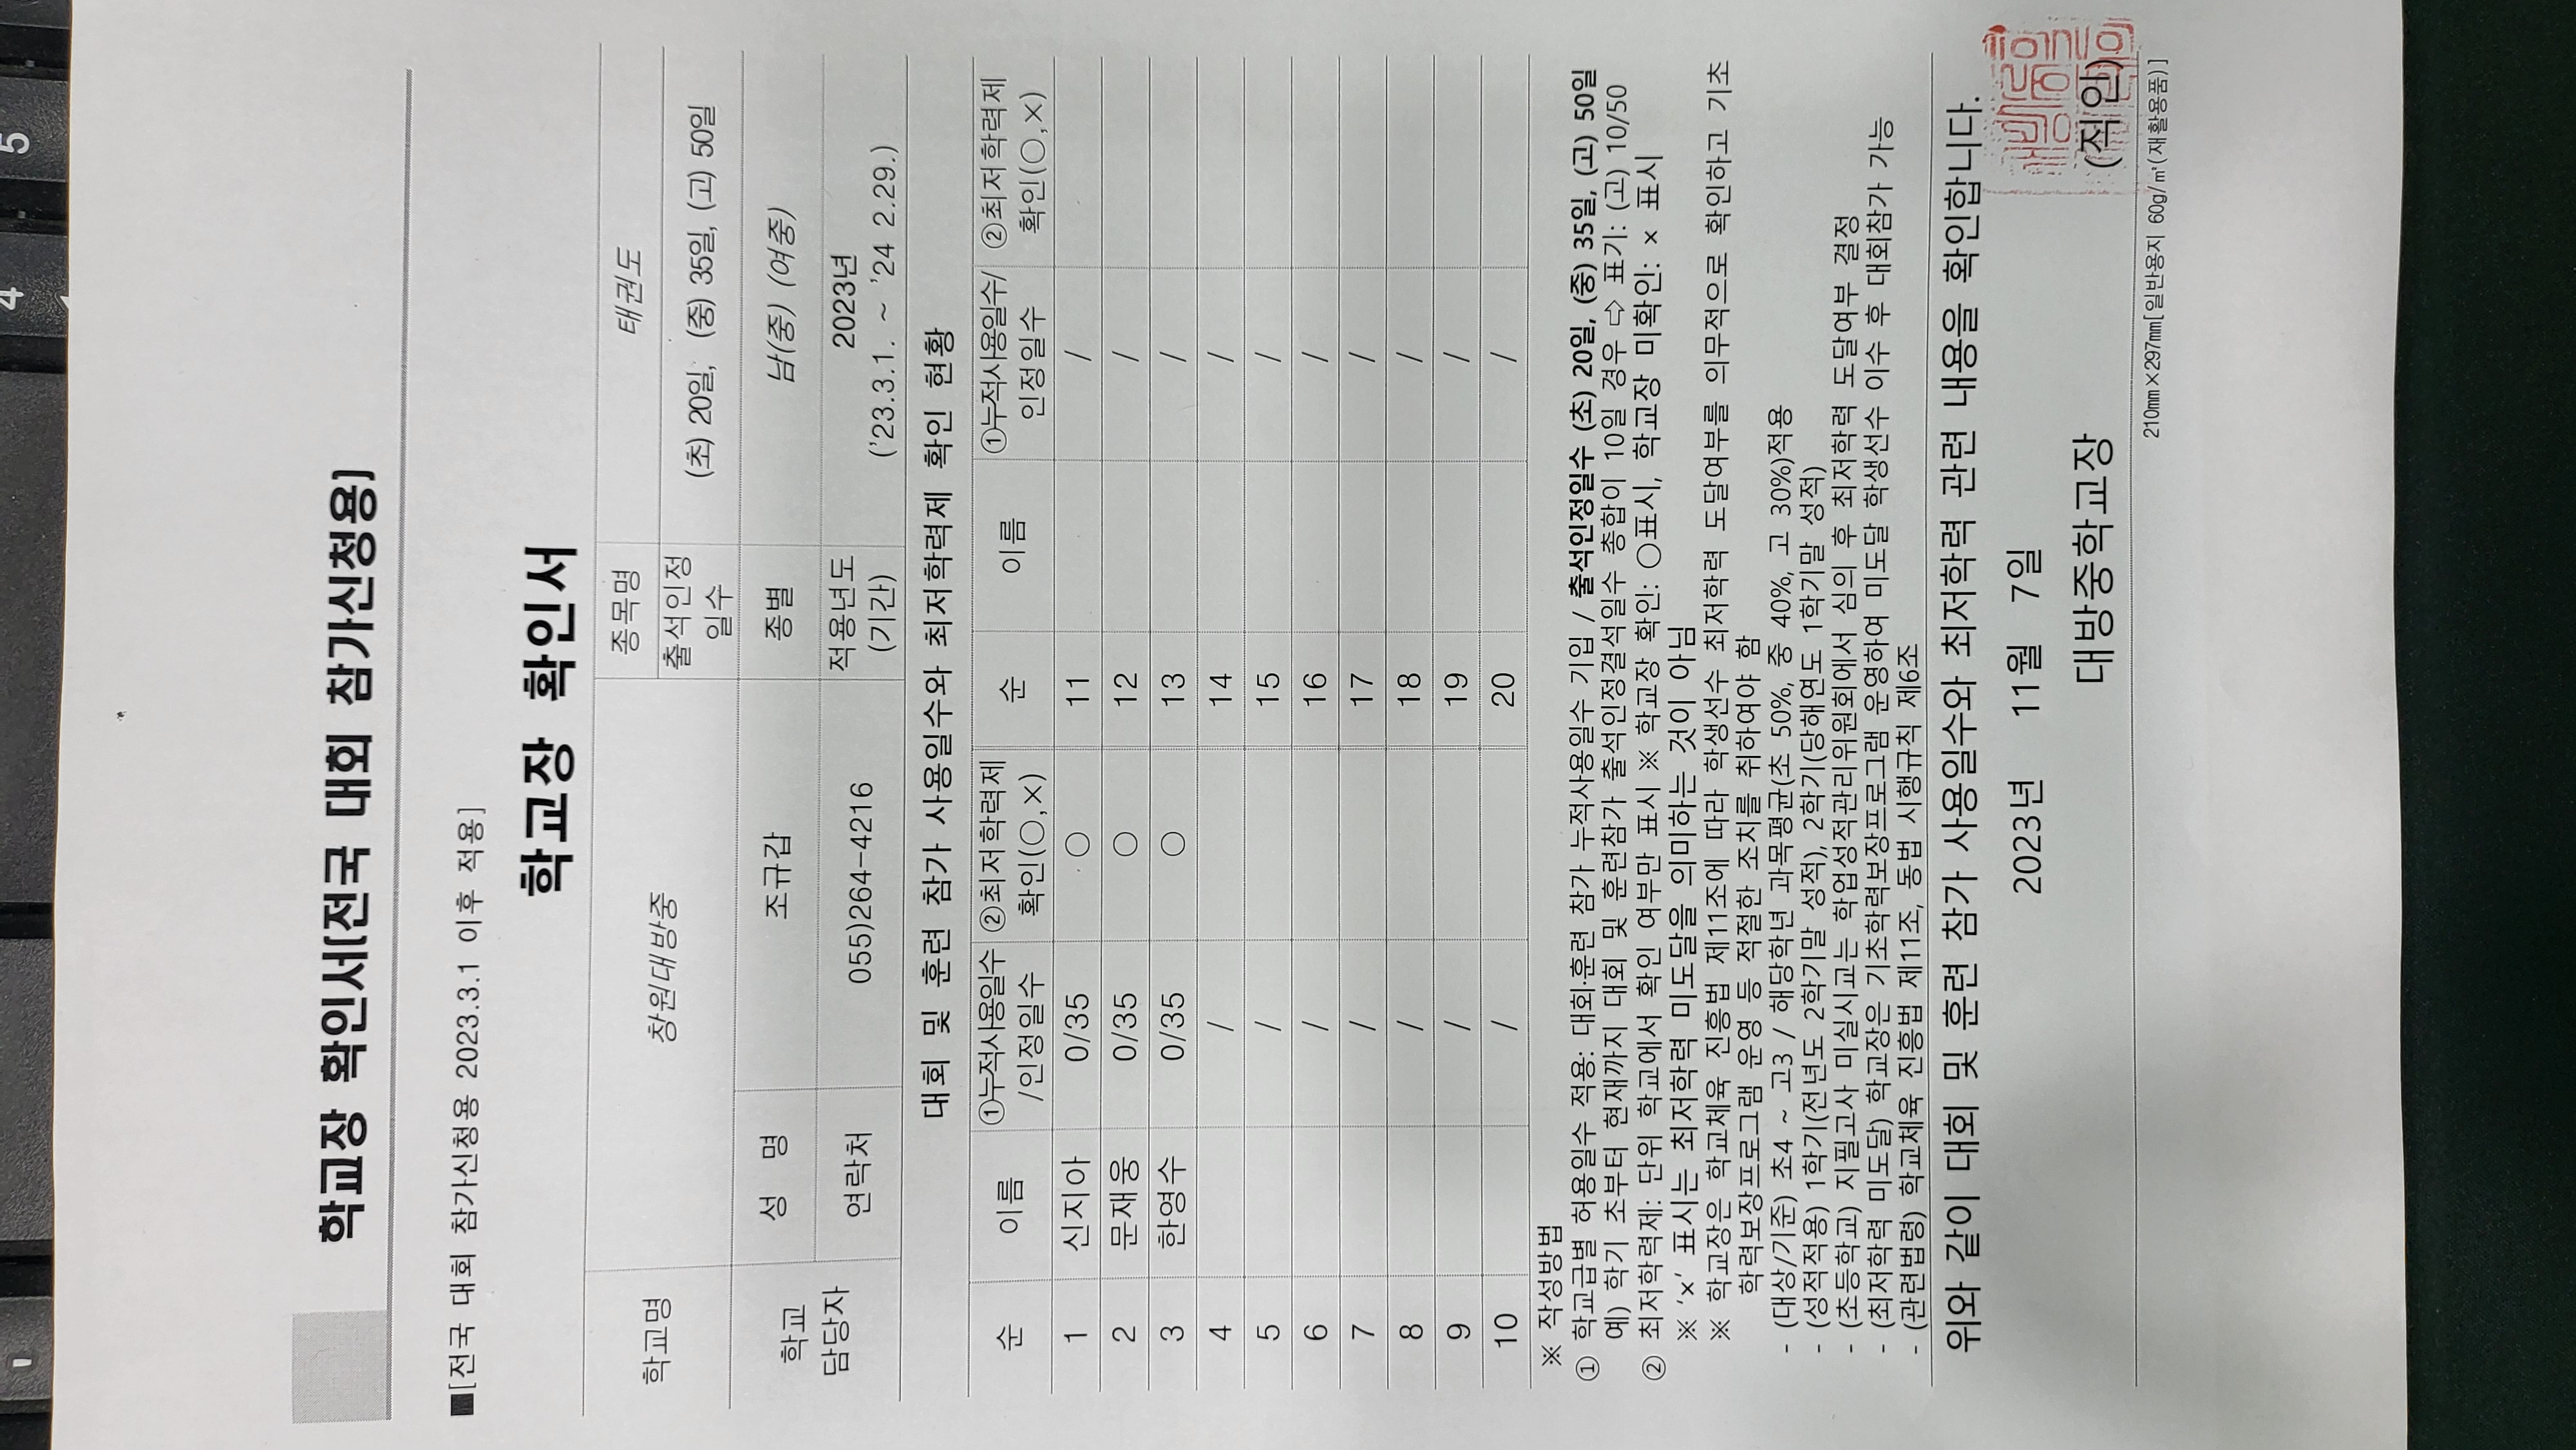 학교장 확인서[전국 대회 참가신청용]
■[전국 대회 참가신청용 2023.3.1 이후 적용]
학교장 확인서
학교명 창원/대방중 종목명 태권도
출석인정일수 (초) 20일, (중) 35일, (고) 50일
학교 담당자 성 명 조규갑 종별 남(중) (여중)
연락처 055)264-4216 적용년도 (기간) 2023년 ('23.3.1. ~ '24 2.29.)
대회 및 훈련 참가 사용일수와 최저학력제 확인 현황
순 이름 ①누적사용일수/인정일수 ②최저학력제 확인(○,×) 순 이름 ①누적사용일수/인정일수 ②최저학력제 확인(○,×)
1 신지아 0/35 ○ 11 /
2 문재웅 0/35 ○ 12 /
3 한영수 0/35 ○ 13 /
4 / 14 /
5 / 15 /
6 / 16 /
7 / 17 /
8 / 18 /
9 / 19 /
10 / 20 /
※ 작성방법
① 학교급별 허용일수 적용: 대회·훈련 참가 누적사용일수 기입 / 출석인정일수 (초) 20일, (중) 35일, (고) 50일
예) 학기 초부터 현재까지 대회 및 훈련참가 출석인정결석일수 총합이 10일 경우 ⇨ 표기: (고) 10/50
② 최저학력제: 단위 학교에서 확인 여부만 표시 ※ 학교장 확인: ○표시, 학교장 미확인: × 표시
※ '×' 표시는 최저학력 미도달을 의미하는 것이 아님
※ 학교장은 학교체육 진흥법 제11조에 따라 학생선수 최저학력 도달여부를 의무적으로 확인하고 기초
학력보장프로그램 운영 등 적절한 조치를 취하여야 함
- (대상/기준) 초4 ~ 고3 / 해당학년 과목평균(초 50%, 중 40%, 고 30%)적용
- (성적적용) 1학기(전년도 2학기말 성적), 2학기(당해연도 1학기말 성적)
- (초등학교) 지필고사 미실시교는 학업성적관리위원회에서 심의 후 최저학력 도달여부 결정
- (최저학력 미도달) 학교장은 기초학력보장프로그램 운영하여 미도달 학생선수 이수 후 대회참가 가능
- (관련법령) 학교체육 진흥법 제11조, 동법 시행규칙 제6조
위와 같이 대회 및 훈련 참가 사용일수와 최저학력 관련 내용을 확인합니다.
2023년 11월 7일
대방중학교장 (직인)
210mm×297mm[일반용지 60g/㎡(재활용품)]
5
4